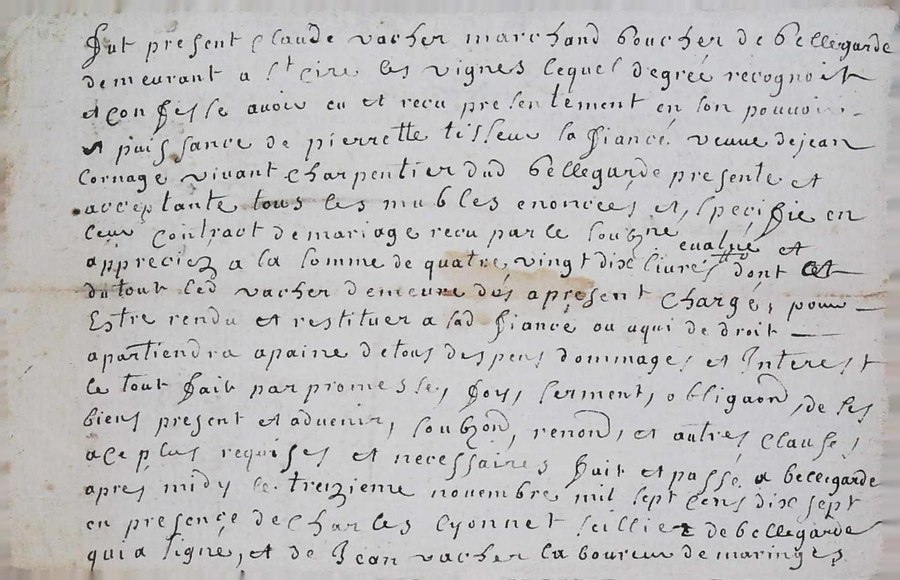 fut present Claude vacher marchand boucher de bellegarde
demeurant a St Cire les vignes lequel degrée recognoit
et confesse avoir eu et recu presentement en son pouvoir
et puissance de pierrette tisseur la fiancé veuve de jean
Cornage vivant charpentier dud bellegarde presente et
acceptante tous les mubles enoncées et specifie en
leur contract de mariage recu par le soubzne evalué et
appreciez a la somme de quatre vingt dix livres tto dont et
du tout led vacher demeure dés apresent chargé, pour
Estre rendu et restituer a lad fiancé ou a qui de droit
apartiendra a paine de tous despens dommages et Interest
le tout fait par promesses, foy, serment, obligaon, de ses
biens present et advenir, soubzon, renon, et autres clauses
a ce plus requises et necessaires fait et passé a bellegarde
apres midy le treizieme novembre mil sept cens dix sept
en presence de Charles Lyonnet seillier de bellegarde
qui a signé, et de Jean vacher laboureur de maringes